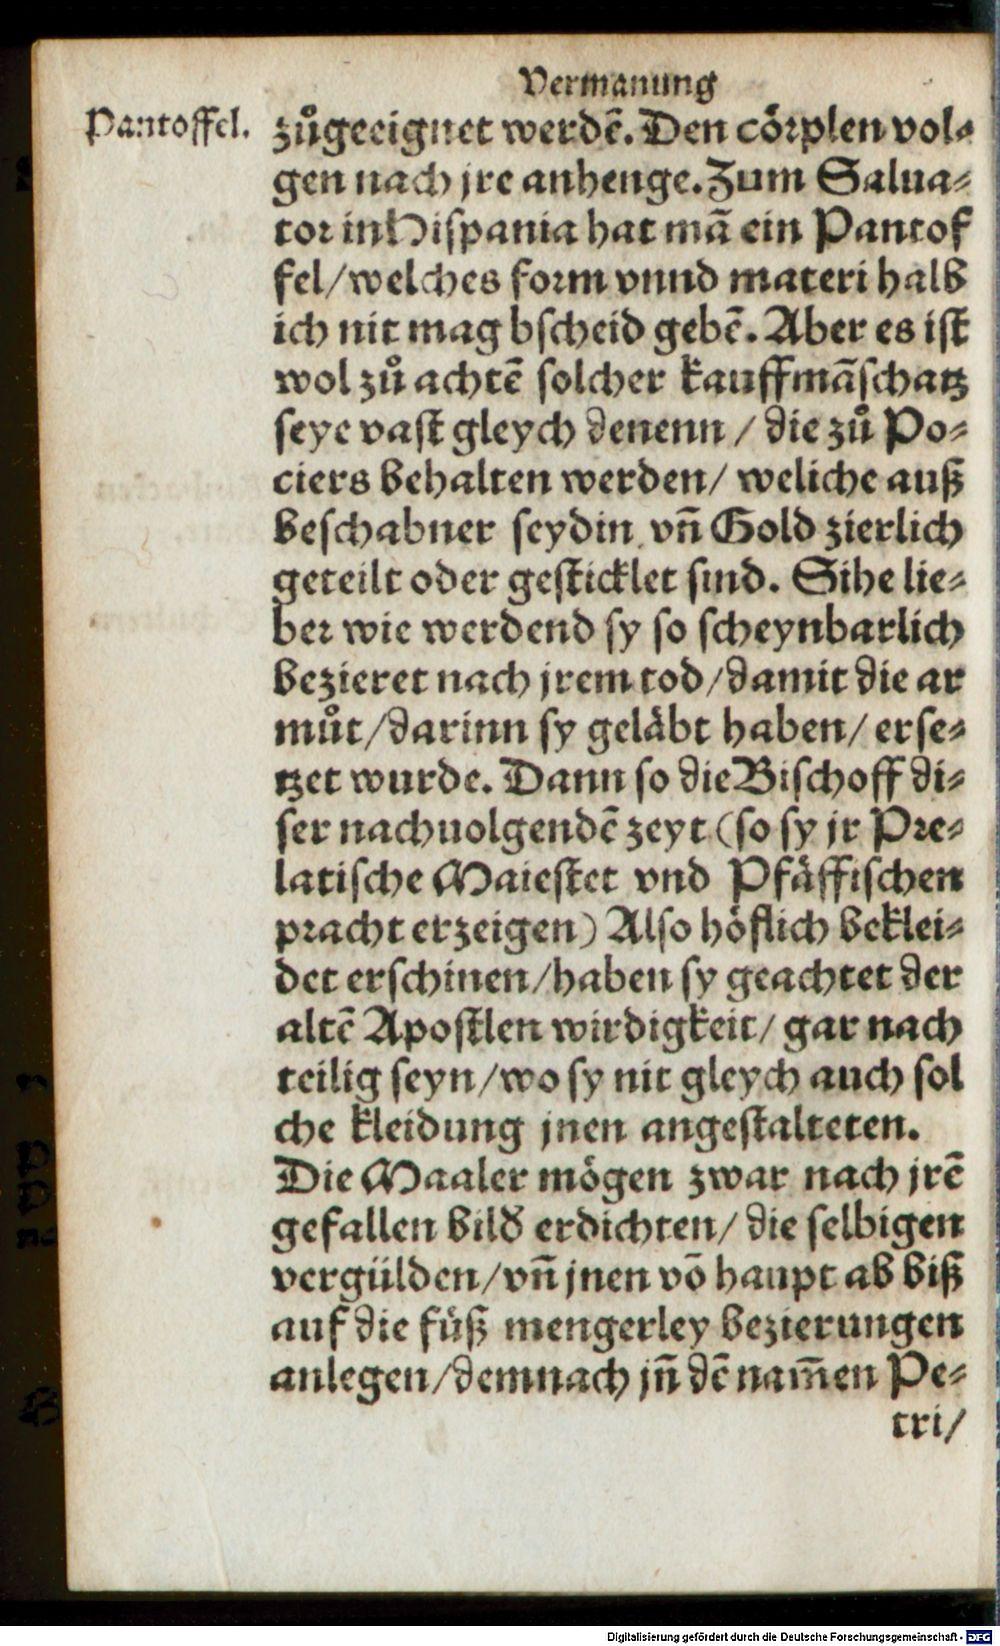 Vermanung
Pantoffel.
zůgeeignet werdē. Den cörplen vol⸗
gen nach jre anhenge. Zum Salua⸗
tor in Hispania hat mā ein Pantof
fel/welches form vnnd materi halb
ich nit mag bscheid gebē. Aber es ist
wol zů achtē solcher kauffmāschatz
seye vast gleych denenn / die zů Po⸗
ciers behalten werden/ weliche auß
beschabner seydin vn̄ Gold zierlich
geteilt oder gesticklet sind. Sihe lie⸗
ber wie werdend sy so scheynbarlich
bezieret nach jrem tod/damit die ar
můt/darinn sy geläbt haben/ erse⸗
tzet wurde. Dann so die Bischoff di⸗
ser nachuolgendē zeyt (so sy jr Pre⸗
latische Maiestet vnd Pfäffischen
pracht erzeigen) Also höflich beklei⸗
det erschinen/haben sy geachtet der
altē Apostlen wirdigkeit/ gar nach
teilig seyn/wo sy nit gleych auch sol
che kleidung jnen angestalteten.
Die Maaler mögen zwar nach jrē
gefallen bild erdichten/ die selbigen
vergülden/vn̄ jnen vō haupt ab biß
auf die füß mengerley bezierungen
anlegen/demnach jn̄ dē nam̄en Pe⸗
tri/
Digitalisierung gefördert durch die Deutsche Forschungsgemeinschaft - DFG